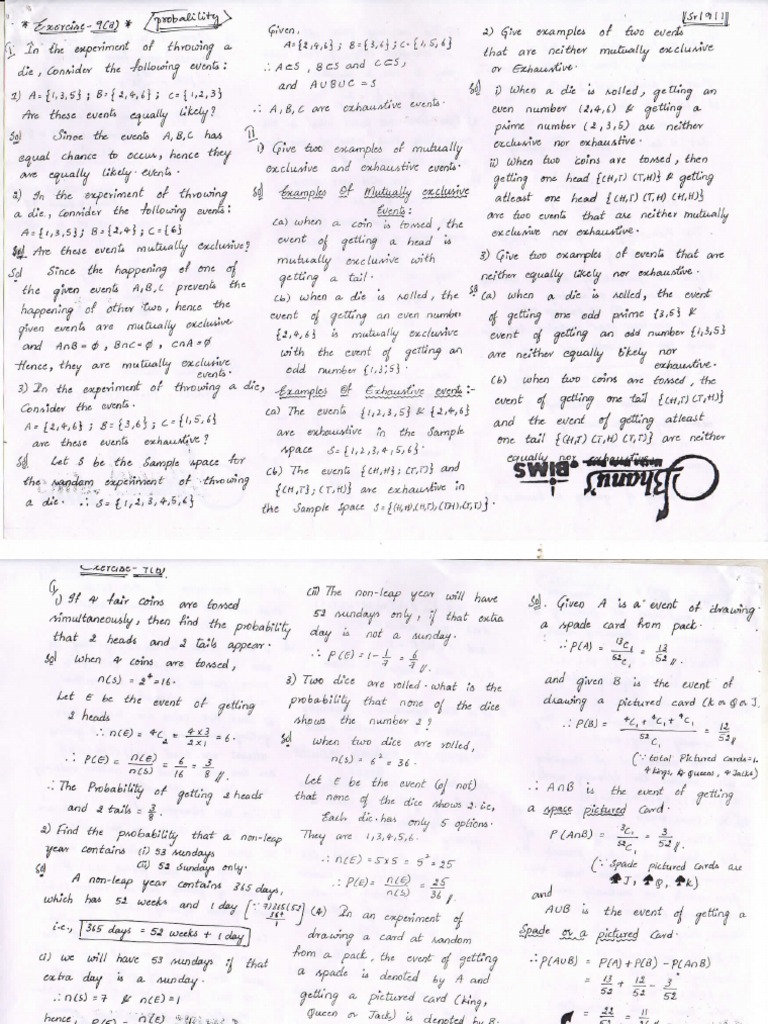 * Exercise-9(a) *
probability
Sr1911
I In the experiment of throwing a
die, Consider the following events:
1) A={1,3,5}; B={2,4,6}; C={1,2,3}
Are these events equally likely?
Sol Since the events A,B,C has
equal chance to occur, hence they
are equally likely events.
2) In the experiment of throwing
a die, consider the following events:
A={1,3,5}; B={2,4}; C={6}
Are these events mutually exclusive?
Sol Since the happening of one of
the given events A,B,C prevents the
happening of other two, hence the
given events are mutually exclusive
and A∩B=∅, B∩C=∅, C∩A=∅
Hence, they are mutually exclusive
events.
3) In the experiment of throwing a die,
Consider the events.
A={2,4,6}; B={3,6}; C={1,5,6}
are these events exhaustive?
Sol Let S be the Sample space for
the random experiment of throwing
a die. ∴ S={1,2,3,4,5,6}
Given,
A={2,4,6}; B={3,6}; C={1,5,6}
∴ A⊂S, B⊂S and C⊂S,
and A∪B∪C=S
∴ A,B,C are exhaustive events.
II
1) Give two examples of mutually
exclusive and exhaustive events.
Sol Examples Of Mutually exclusive
Events:
(a) when a coin is tossed, the
event of getting a head is
mutually exclusive with
getting a tail.
(b) when a die is rolled, the
event of getting an even number
{2,4,6} is mutually exclusive
with the event of getting an
odd number {1,3,5}.
Examples Of Exhaustive events:-
(a) The events {1,2,3,5} & {2,4,6}
are exhaustive in the Sample
space S={1,2,3,4,5,6}.
(b) The events {(H,H);(T,T)} and
{(H,T);(T,H)} are exhaustive in
the Sample Space S={(H,H),(H,T),(T,H),(T,T)}.
2) Give examples of two events
that are neither mutually exclusive
or Exhaustive.
Sol i) When a die is rolled, getting an
even number (2,4,6) & getting a
prime number (2,3,5) are neither
exclusive nor exhaustive.
ii) When two coins are tossed, then
getting one head {(H,T) (T,H)} & getting
atleast one head {(H,T) (T,H) (H,H)}
are two events that are neither mutually
exclusive nor exhaustive.
3) Give two examples of events that are
neither equally likely nor exhaustive.
(a) when a die is rolled, the event
of getting one odd prime {3,5} &
event of getting an odd number {1,3,5}
are neither equally likely nor
exhaustive.
(b) when two coins are tossed, the
event of getting one tail {(H,T) (T,H)}
and the event of getting atleast
one tail {(H,T) (T,H) (T,T)} are neither
equally nor exhaustive.
Bhanu's
BIMS
I
1) If 4 fair coins are tossed
simultaneously, then find the probability
that 2 heads and 2 tails appear.
Sol when 4 coins are tossed,
n(S) = 2⁴ = 16.
Let E be the event of getting
2 heads
∴ n(E) = ⁴C₂ = 4×3/2×1 = 6.
∴ P(E) = n(E)/n(S) = 6/16 = 3/8 //.
∴ The Probability of getting 2 heads
and 2 tails = 3/8.
2) Find the probability that a non-leap
year contains (i) 53 sundays
(ii) 52 sundays only.
Sol A non-leap year contains 365 days,
which has 52 weeks and 1 day [∵ 7)365(52 364 1]
i.e., 365 days = 52 weeks + 1 day
(i) we will have 53 sundays if that
extra day is a sunday.
∴ n(S)=7 & n(E)=1
hence, P(E) = n(E)
(ii) The non-leap year will have
52 sundays only, if that extra
day is not a sunday.
∴ P(E) = 1 - 1/7 = 6/7 //.
3) Two dice are rolled. what is the
probability that none of the dice
shows the number 2?
Sol when two dice are rolled,
n(S) = 6² = 36.
Let E be the event (of not)
that none of the dice shows 2. i.e,
Each die has only 5 options.
They are 1,3,4,5,6.
∴ n(E) = 5×5 = 5² = 25
∴ P(E) = n(E)/n(S) = 25/36 //.
(4) In an experiment of
drawing a card at random
from a pack, the event of getting
a spade is denoted by A and
getting a pictured card (king,
Queen or Jack) is denoted by B.
Sol. Given A is a event of drawing
a spade card from pack.
∴ P(A) = ¹³C₁/⁵²C₁ = 13/52 //.
and given B is the event of
drawing a pictured card (K or Q or J.
∴ P(B) = ⁴C₁+⁴C₁+⁴C₁/⁵²C₁ = 12/52 //
(∵ total Pictured cards=1.
4 kings, 4 Queens, 4 Jacks)
∴ A∩B is the event of getting
a spade pictured Card.
P(A∩B) = ³C₁/⁵²C₁ = 3/52 //.
(∵ Spade pictured cards are
♠J, ♠Q, ♠K)
and
A∪B is the event of getting a
Spade or a pictured Card.
∴ P(A∪B) = P(A)+P(B)-P(A∩B)
= 13/52 + 12/52 - 3/52
= 22/52 = 11